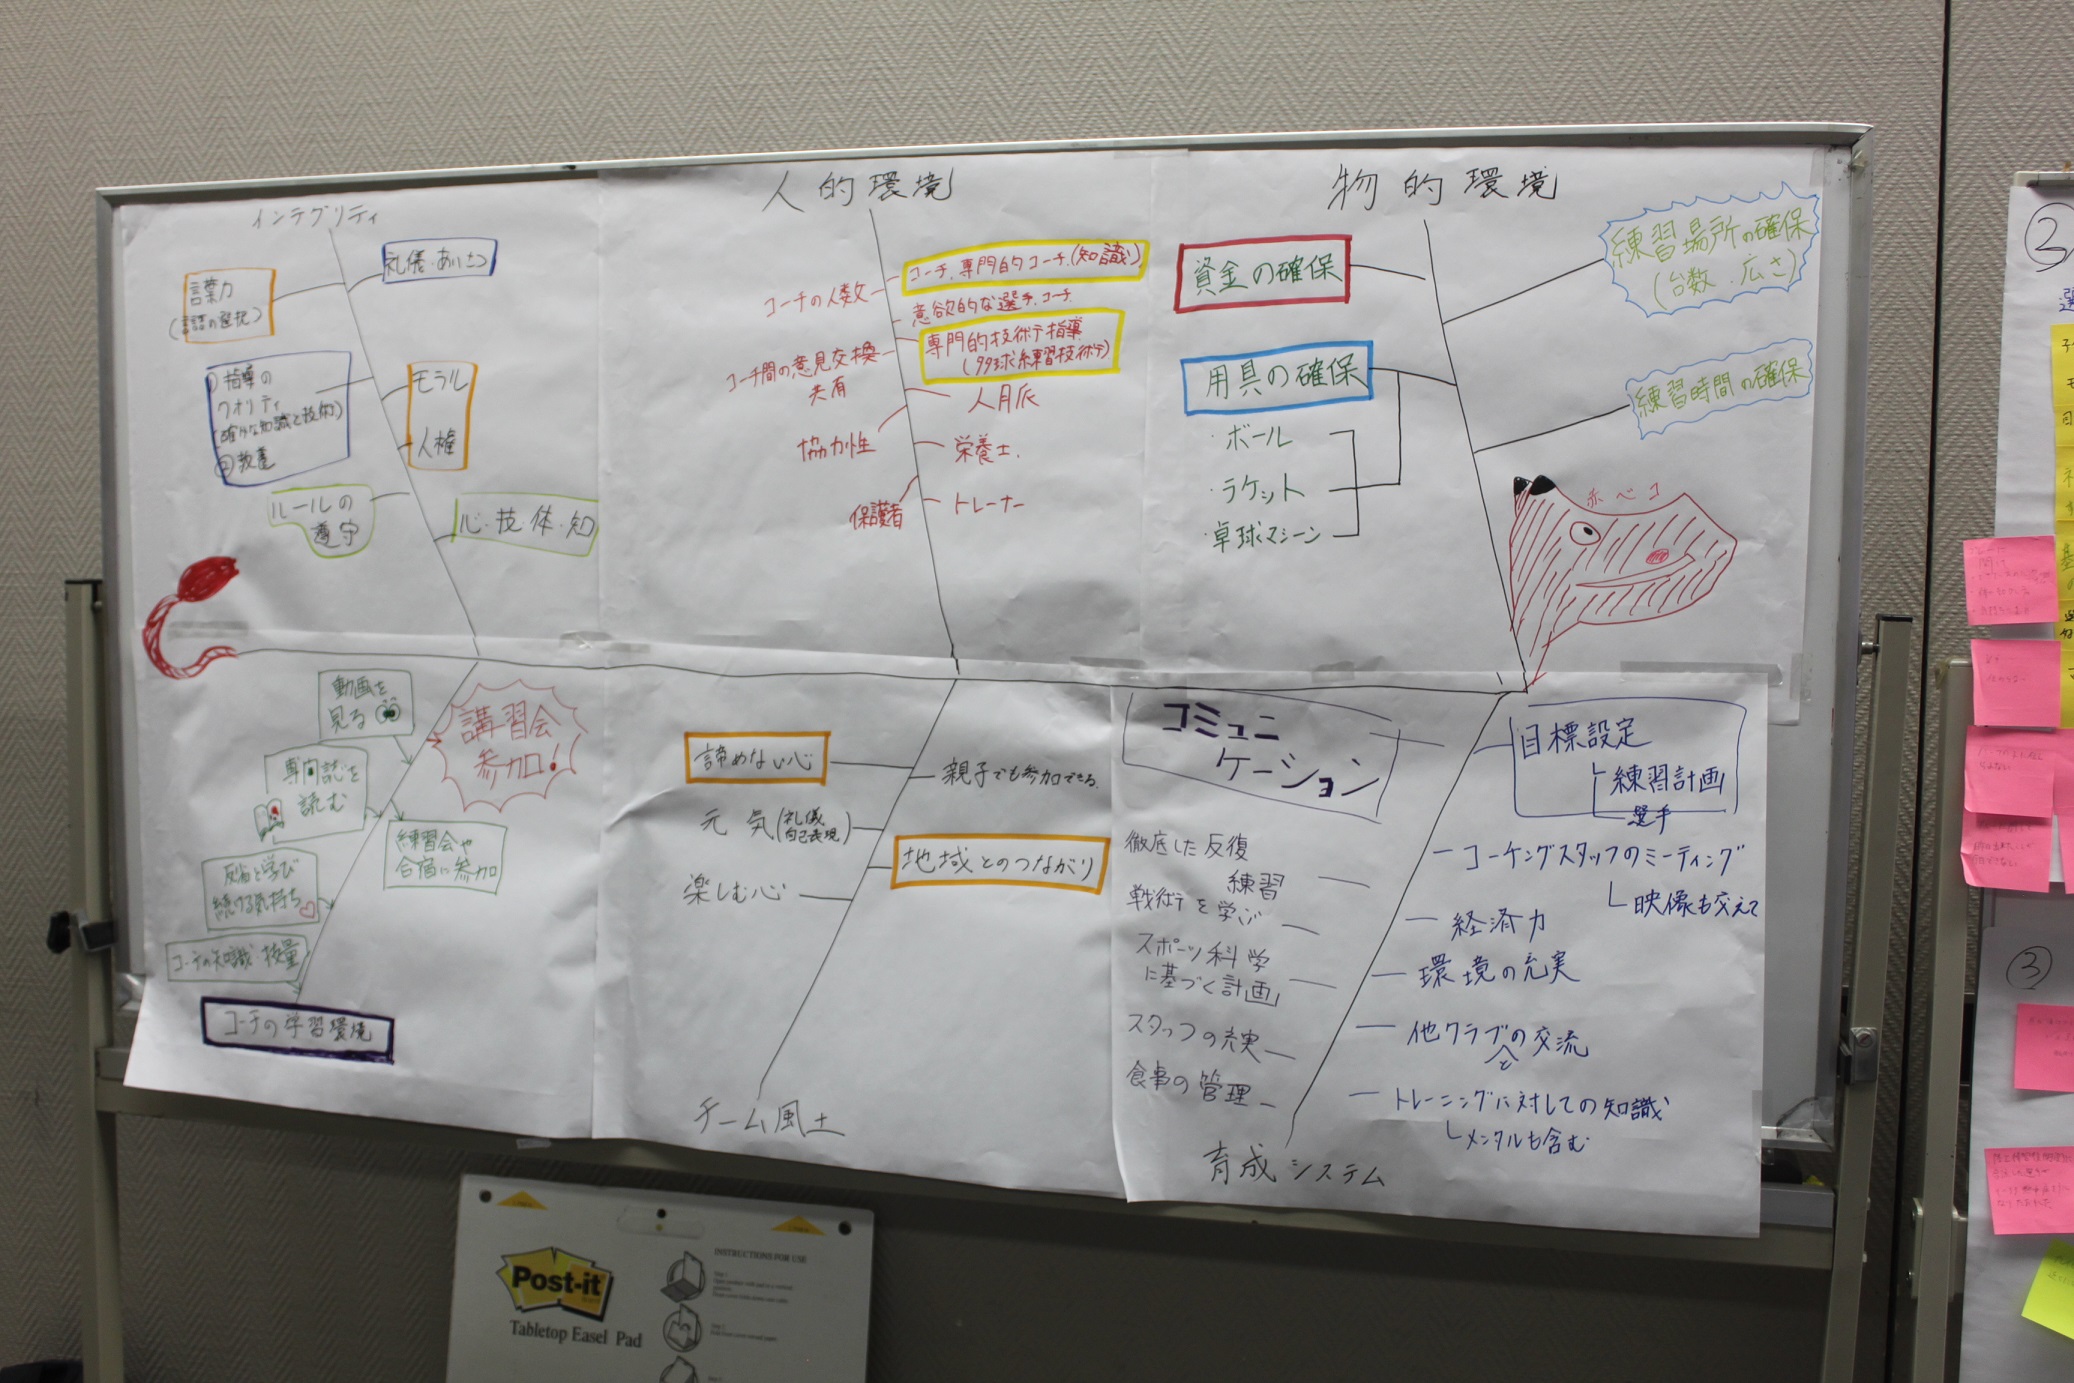 インテグリティ
礼儀・あいさつ
言葉力
指導の
クオリティ
モラル
人権
ルールの
遵守
心・技・体・知
人的環境
コーチ、専門的コーチ(知識)
コーチの人数
意欲的な選手、コーチ
専門的技術指導
コーチ間の意見交換
共有
人脈
協力性
栄養士
保護者
トレーナー
物的環境
資金の確保
練習場所の確保
(台数、広さ)
用具の確保
練習時間の確保
・ボール
・ラケット
・卓球マシーン
赤べコ
動画を
見る
講習会
参加!
専門誌を
読む
練習会や
合宿に参加
続ける気持ち
コーチの知識・技量
コーチの学習環境
諦めない心
親子でも参加できる
元気(礼儀
自己表現)
地域とのつながり
楽しむ心
チーム風土
コミュニ
ケーション
目標設定
練習計画
選手
徹底した反復
練習
コーチングスタッフのミーティング
映像も交えて
戦術を学ぶ
経済力
スポーツ科学
に基づく計画
環境の充実
スタッフの充実
他クラブの交流
と
食事の管理
トレーニングに対しての知識
メンタルも含む
育成システム
②
③
Post-it
Tabletop Easel Pad
INSTRUCTIONS FOR USE